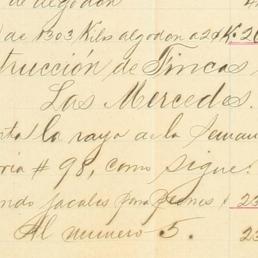 de algodon
de 1303 Kilos algodon a 2¢ K. 26
trucción de Fincas
Las Mercedes.
la raya de la Seman
oria # 98, como sigue:
ndo jacales para peones $ 23
Al numero 5. 23